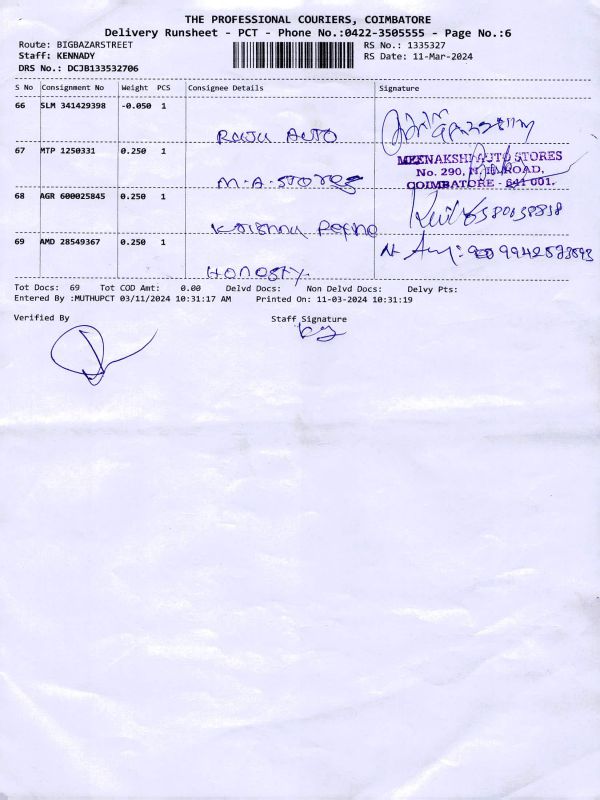 THE PROFESSIONAL COURIERS, COIMBATORE
Delivery Runsheet - PCT - Phone No.:0422-3505555 - Page No.:6
Route: BIGBAZARSTREET
RS No.: 1335327
Staff: KENNADY
RS Date: 11-Mar-2024
DRS No.: DCJB133532706
S No Consignment No Weight PCS Consignee Details Signature
66 SLM 341429398 -0.050 1
Raju Auto
67 MTP 1250331 0.250 1
MEENAKSHI AUTO STORES
No. 290, ROAD,
M.A. Stores
COIMBATORE - 641 001.
68 AGR 600025845 0.250 1
6380038838
Krishna
69 AMD 28549367 0.250 1
9942583693
Honesty.
Tot Docs: 69 Tot COD Amt: 0.00 Delvd Docs: Non Delvd Docs: Delvy Pts:
Entered By :MUTHUPCT 03/11/2024 10:31:17 AM Printed On: 11-03-2024 10:31:19
Verified By Staff Signature